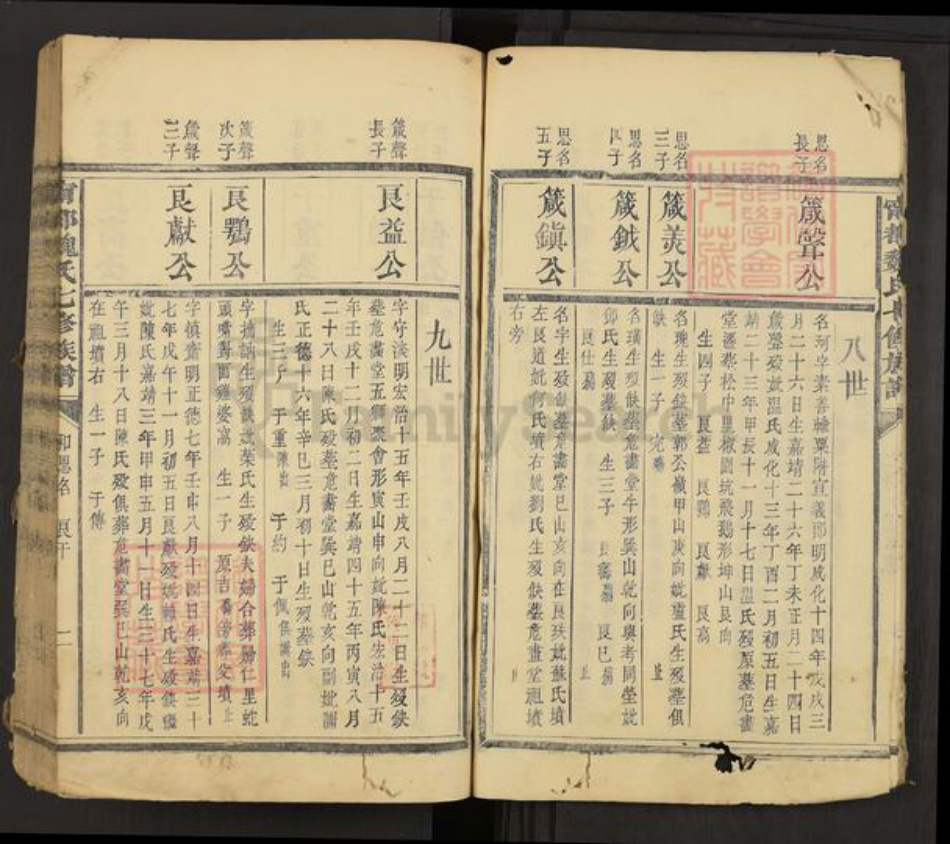 寧都魏氏七修族譜
八世
思名長子
箴聲公
名珂字素善輸粟附宣義郎明成化十四年戊戌三
月二十六日生嘉靖二十六年丁未正月二十四日
箴聲歿妣溫氏成化十三年丁酉二月初五日生嘉
靖二十三年甲辰十一月十七日溫氏歿原墓危畵
堂遷葬松中里椒園坑飛鵝形坤山艮向
生四子 艮益 艮鶚 艮獻 艮高
思名三子
箴羙公
名瓊生歿缺墓郭公嶺甲山庚向妣盧氏生歿墓俱
缺 生一子
思名四子
箴鉞公
名璜生歿缺墓危畵堂牛形巽山乾向與考同塋妣
鄧氏生歿墓缺 生三子
思名五子
箴鎭公
名宇生歿缺墓危畵堂巳山亥向在艮玞妣蘇氏墳
左艮道妣何氏墳右妣劉氏生歿缺墓危畵堂祖墳
右旁
九世
箴聲長子
艮益公
字守淡明宏治十五年壬戌八月二十二日生歿缺
墓危畵堂五獅聚會形寅山申向妣陳氏宏治十五
年壬戌十二月初二日生嘉靖四十五年丙寅八月
二十八日陳氏歿墓危畵堂巽巳山乾亥向副妣謝
氏正德十六年辛巳三月初十日生歿墓缺
生三子 于重 于約 于佩
箴聲次子
艮鶚公
字擔訥生歿缺妣葉氏生歿缺夫婦合葬歸仁里蛇
頭嘴對面雞婆窩 生一子 原吉
箴聲三子
艮獻公
字愼齋明正德七年壬申八月十四日生嘉靖三十
七年戊午十一月初五日艮獻歿妣賴氏生歿缺繼
妣陳氏嘉靖三年甲申五月十一日生三十七年戊
午三月十八日陳氏歿俱葬危畵堂巽巳山乾亥向
在祖墳右 生一子 于傳
寧都魏氏七修族譜
二
FamilySearch